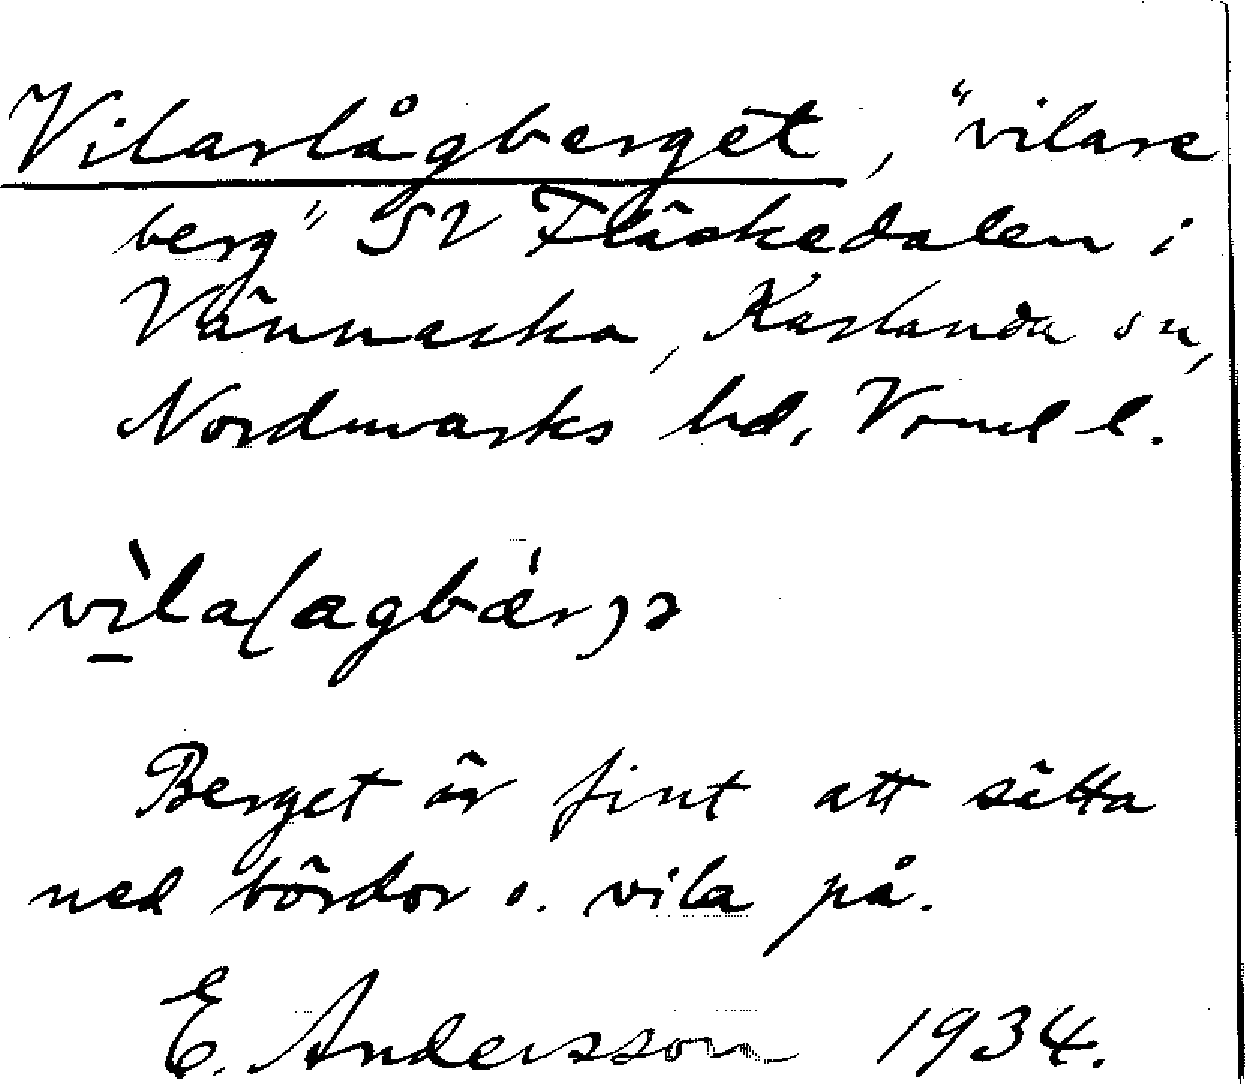 Vilarlågberget, "vilare
berg" SV Fläskedalen i
Vännacka, Karlanda sn,
Nordmarks hd, Vrml l.
Berget är fint att sätta
ned bördor o. vila på.
E. Andersson 1934.